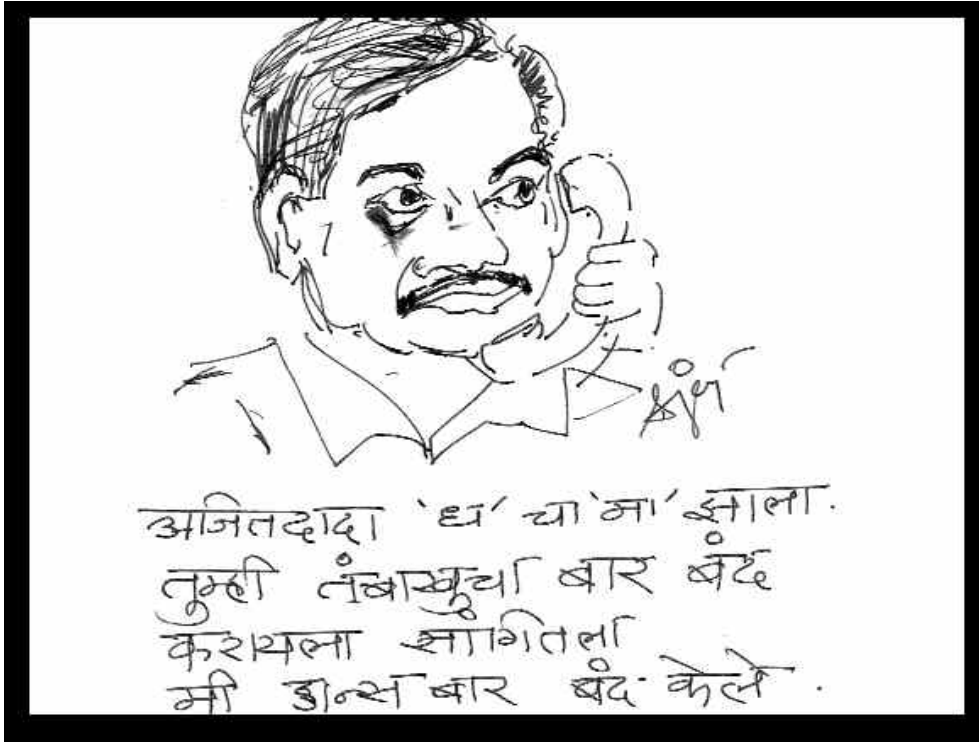 अजितदादा 'ध' चा 'मा' झाला.
तुम्ही तंबाखुचा बार बंद
करायला सांगितला
मी डान्स बार बंद केले.